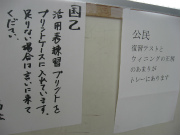 国乙
活用表練習プリントを
プリントケースに入れています。
足りない場合は言いに来て
ください。
公民
復習テストと
ウィニングの正答
のあまりが
トレーにあります